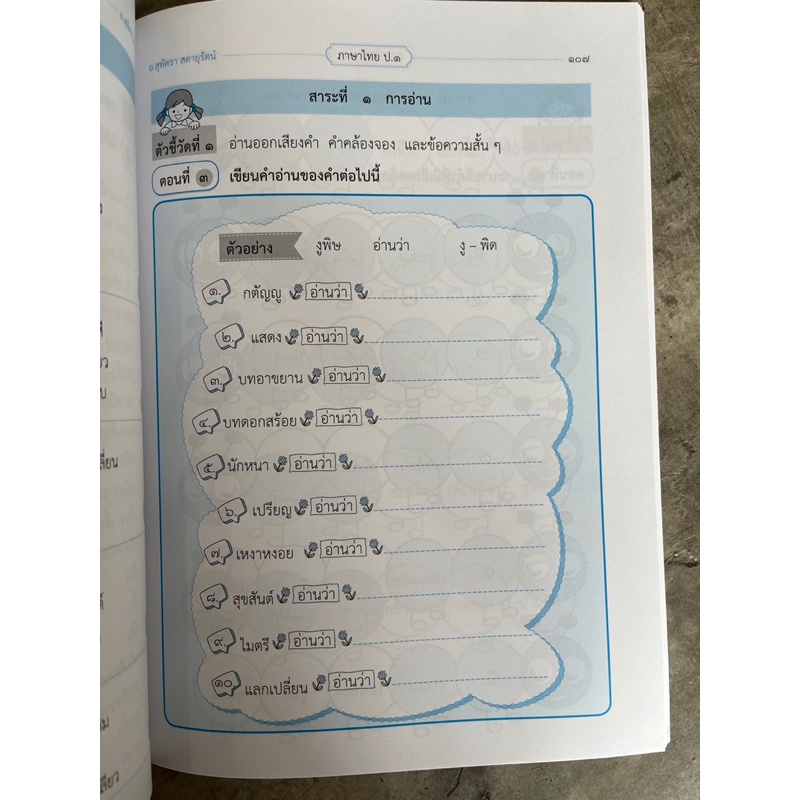 อ.สุพัตรา สดายุรัตน์ ภาษาไทย ป.๑ ๑๐๗
สาระที่ ๑ การอ่าน
ตัวชี้วัดที่ ๑ อ่านออกเสียงคำ คำคล้องจอง และข้อความสั้น ๆ
ตอนที่ ๓ เขียนคำอ่านของคำต่อไปนี้
ตัวอย่าง งูพิษ อ่านว่า งู – พิด
๑. กตัญญู อ่านว่า
๒. แสดง อ่านว่า
๓. บทอาขยาน อ่านว่า
๔. บทดอกสร้อย อ่านว่า
๕. นักหนา อ่านว่า
๖. เปรียญ อ่านว่า
๗. เหงาหงอย อ่านว่า
๘. สุขสันต์ อ่านว่า
๙. ไมตรี อ่านว่า
๑๐. แลกเปลี่ยน อ่านว่า